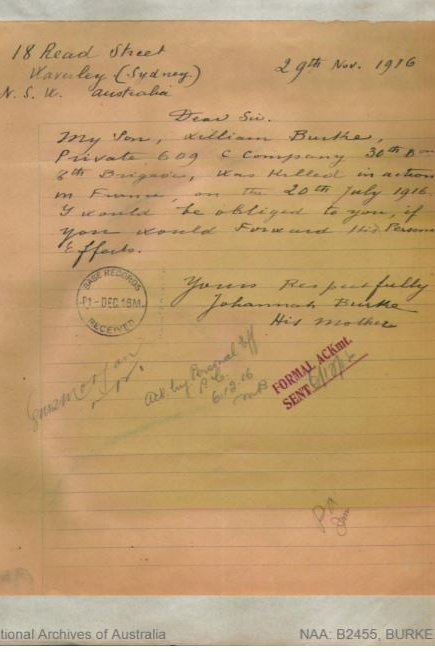 18 Read Street
Waverley (Sydney.)
N. S. W. Australia
29th Nov. 1916
Dear Sir.
My Son, William Burke,
Private 609 C Company 30th B
8th Brigade, was Killed in action
in France, on the 20th July 1916.
I would be obliged to you, if
you would Forward His Person
Effects.
Yours Respectfully
Johannah Burke
His Mother
BASE RECORDS
-1-DEC.16M.
RECEIVED
Ack by Personal Eff
6.12.16
FORMAL ACKmt.
SENT
tional Archives of Australia
NAA: B2455, BURKE